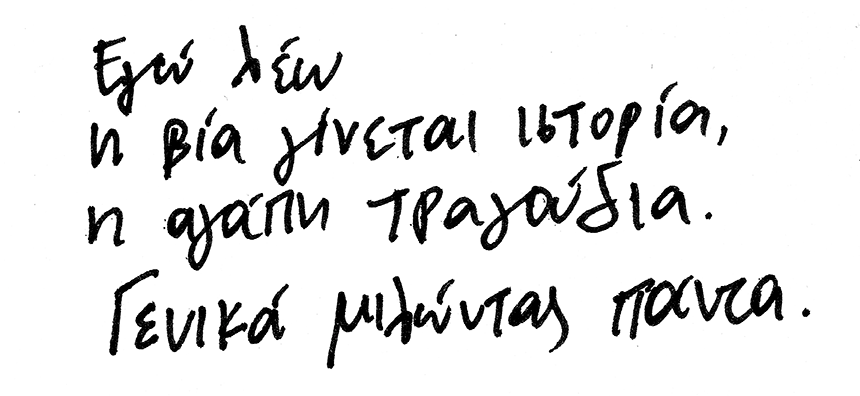 Εγώ λέω
η βία γίνεται ιστορία,
η αγάπη τραγούδια.
Γενικά μιλώντας πάντα.